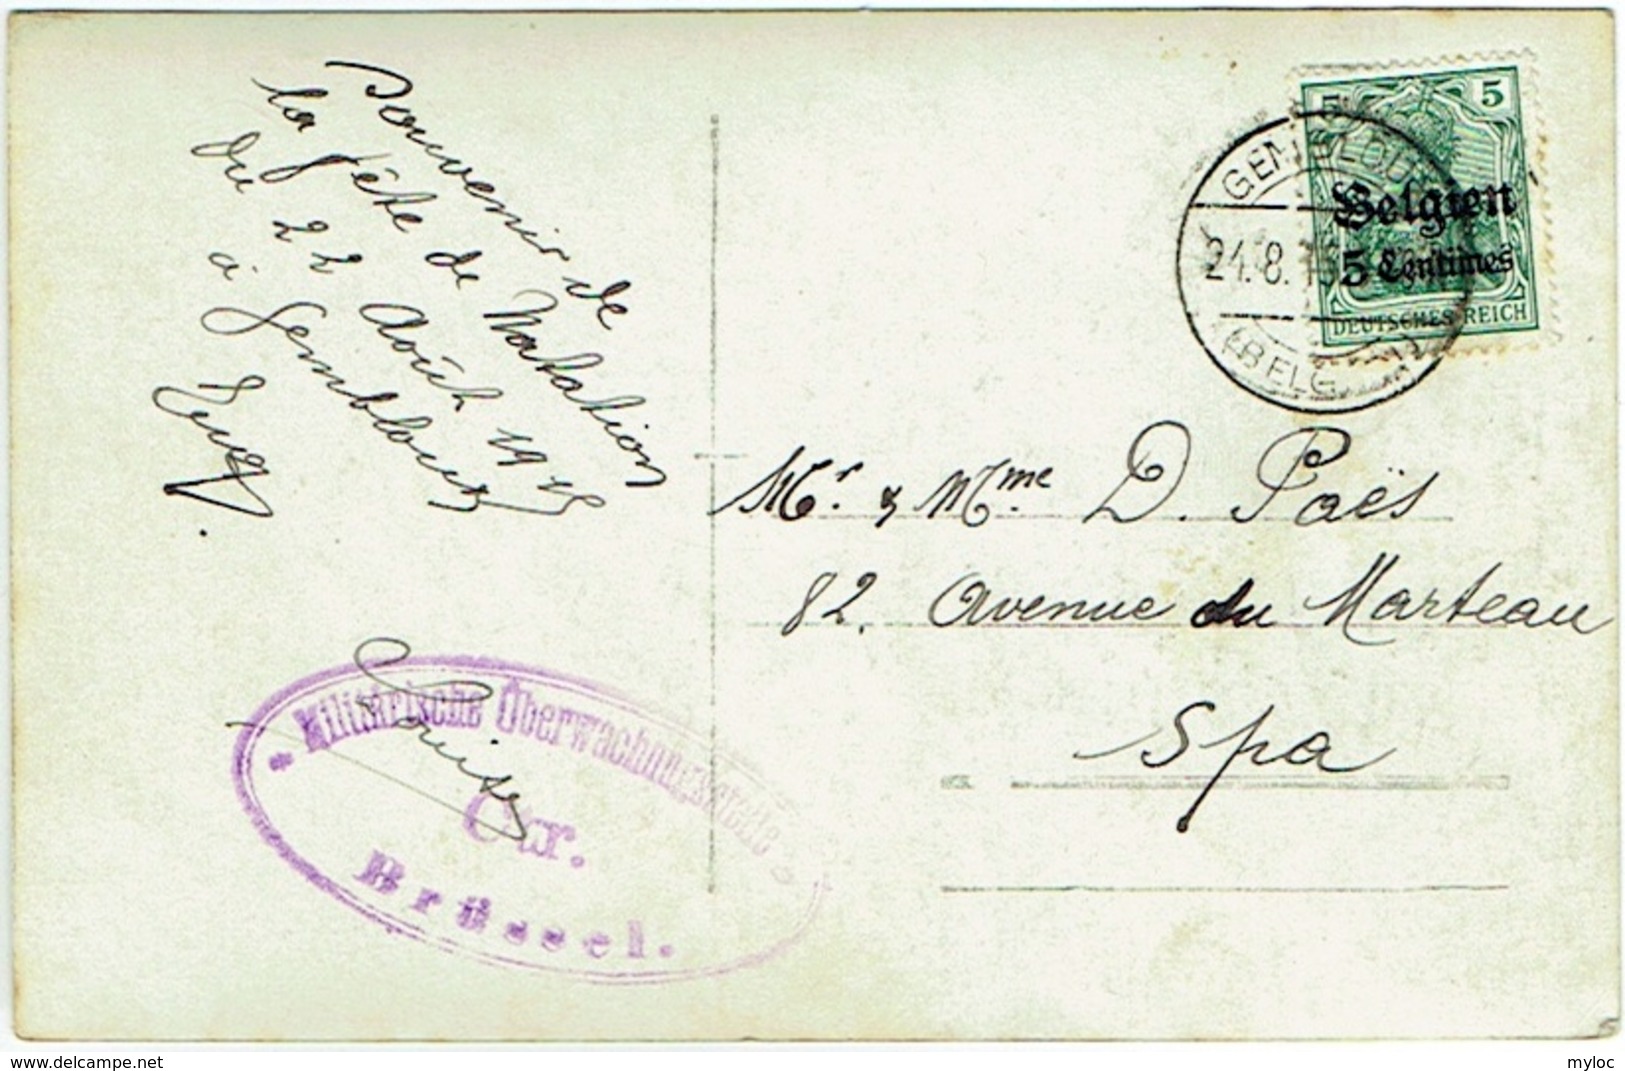 Souvenir de
la fête de Natation
du 22 Août 1915
à Gembloux
Louise
5 5
Belgien
5 Centimes
DEUTSCHES REICH
GEMBLOUX
21.8.15
(BELG
Mr. & Mme. D. Paës
82. Avenue du Marteau
Spa
* Militärische Überwachungsstelle *
Car.
Brüssel.
delcampe.net
myloc